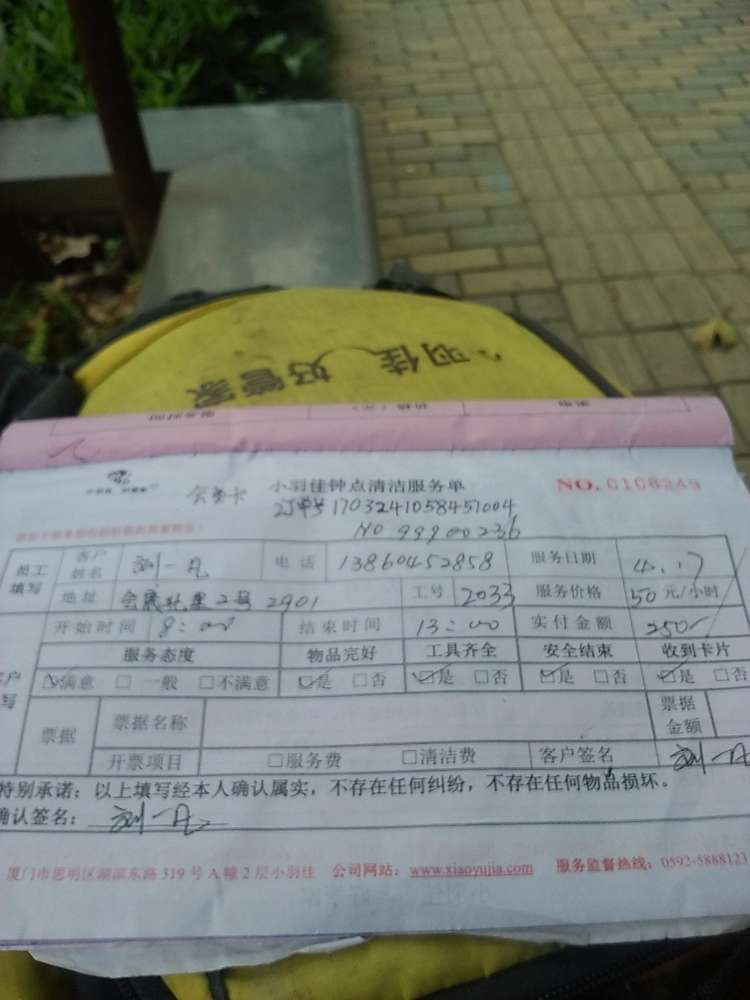 羽佳 好管家
服务时间
会员卡 小羽佳钟点清洁服务单 NO. 0108249
订单号 1703241058457004
NO 99900236
员工填写 客户姓名 刘一凡 电话 13860452858 服务日期 4.17
地址 2号 2901 工号 2033 服务价格 50元/小时
开始时间 8:00 结束时间 13:00 实付金额 250
服务态度 物品完好 工具齐全 安全结束 收到卡片
☑满意 □一般 □不满意 ☑是 □否 ☑是 □否 ☑是 □否 ☑是 □否
票据 票据名称 票据金额
开票项目 □服务费 □清洁费 客户签名 刘一凡
特别承诺：以上填写经本人确认属实，不存在任何纠纷，不存在任何物品损坏。
确认签名： 刘一凡
厦门市思明区湖滨东路 319 号 A 幢 2 层小羽佳 公司网站：www.xiaoyujia.com 服务监督热线：0592-5888123